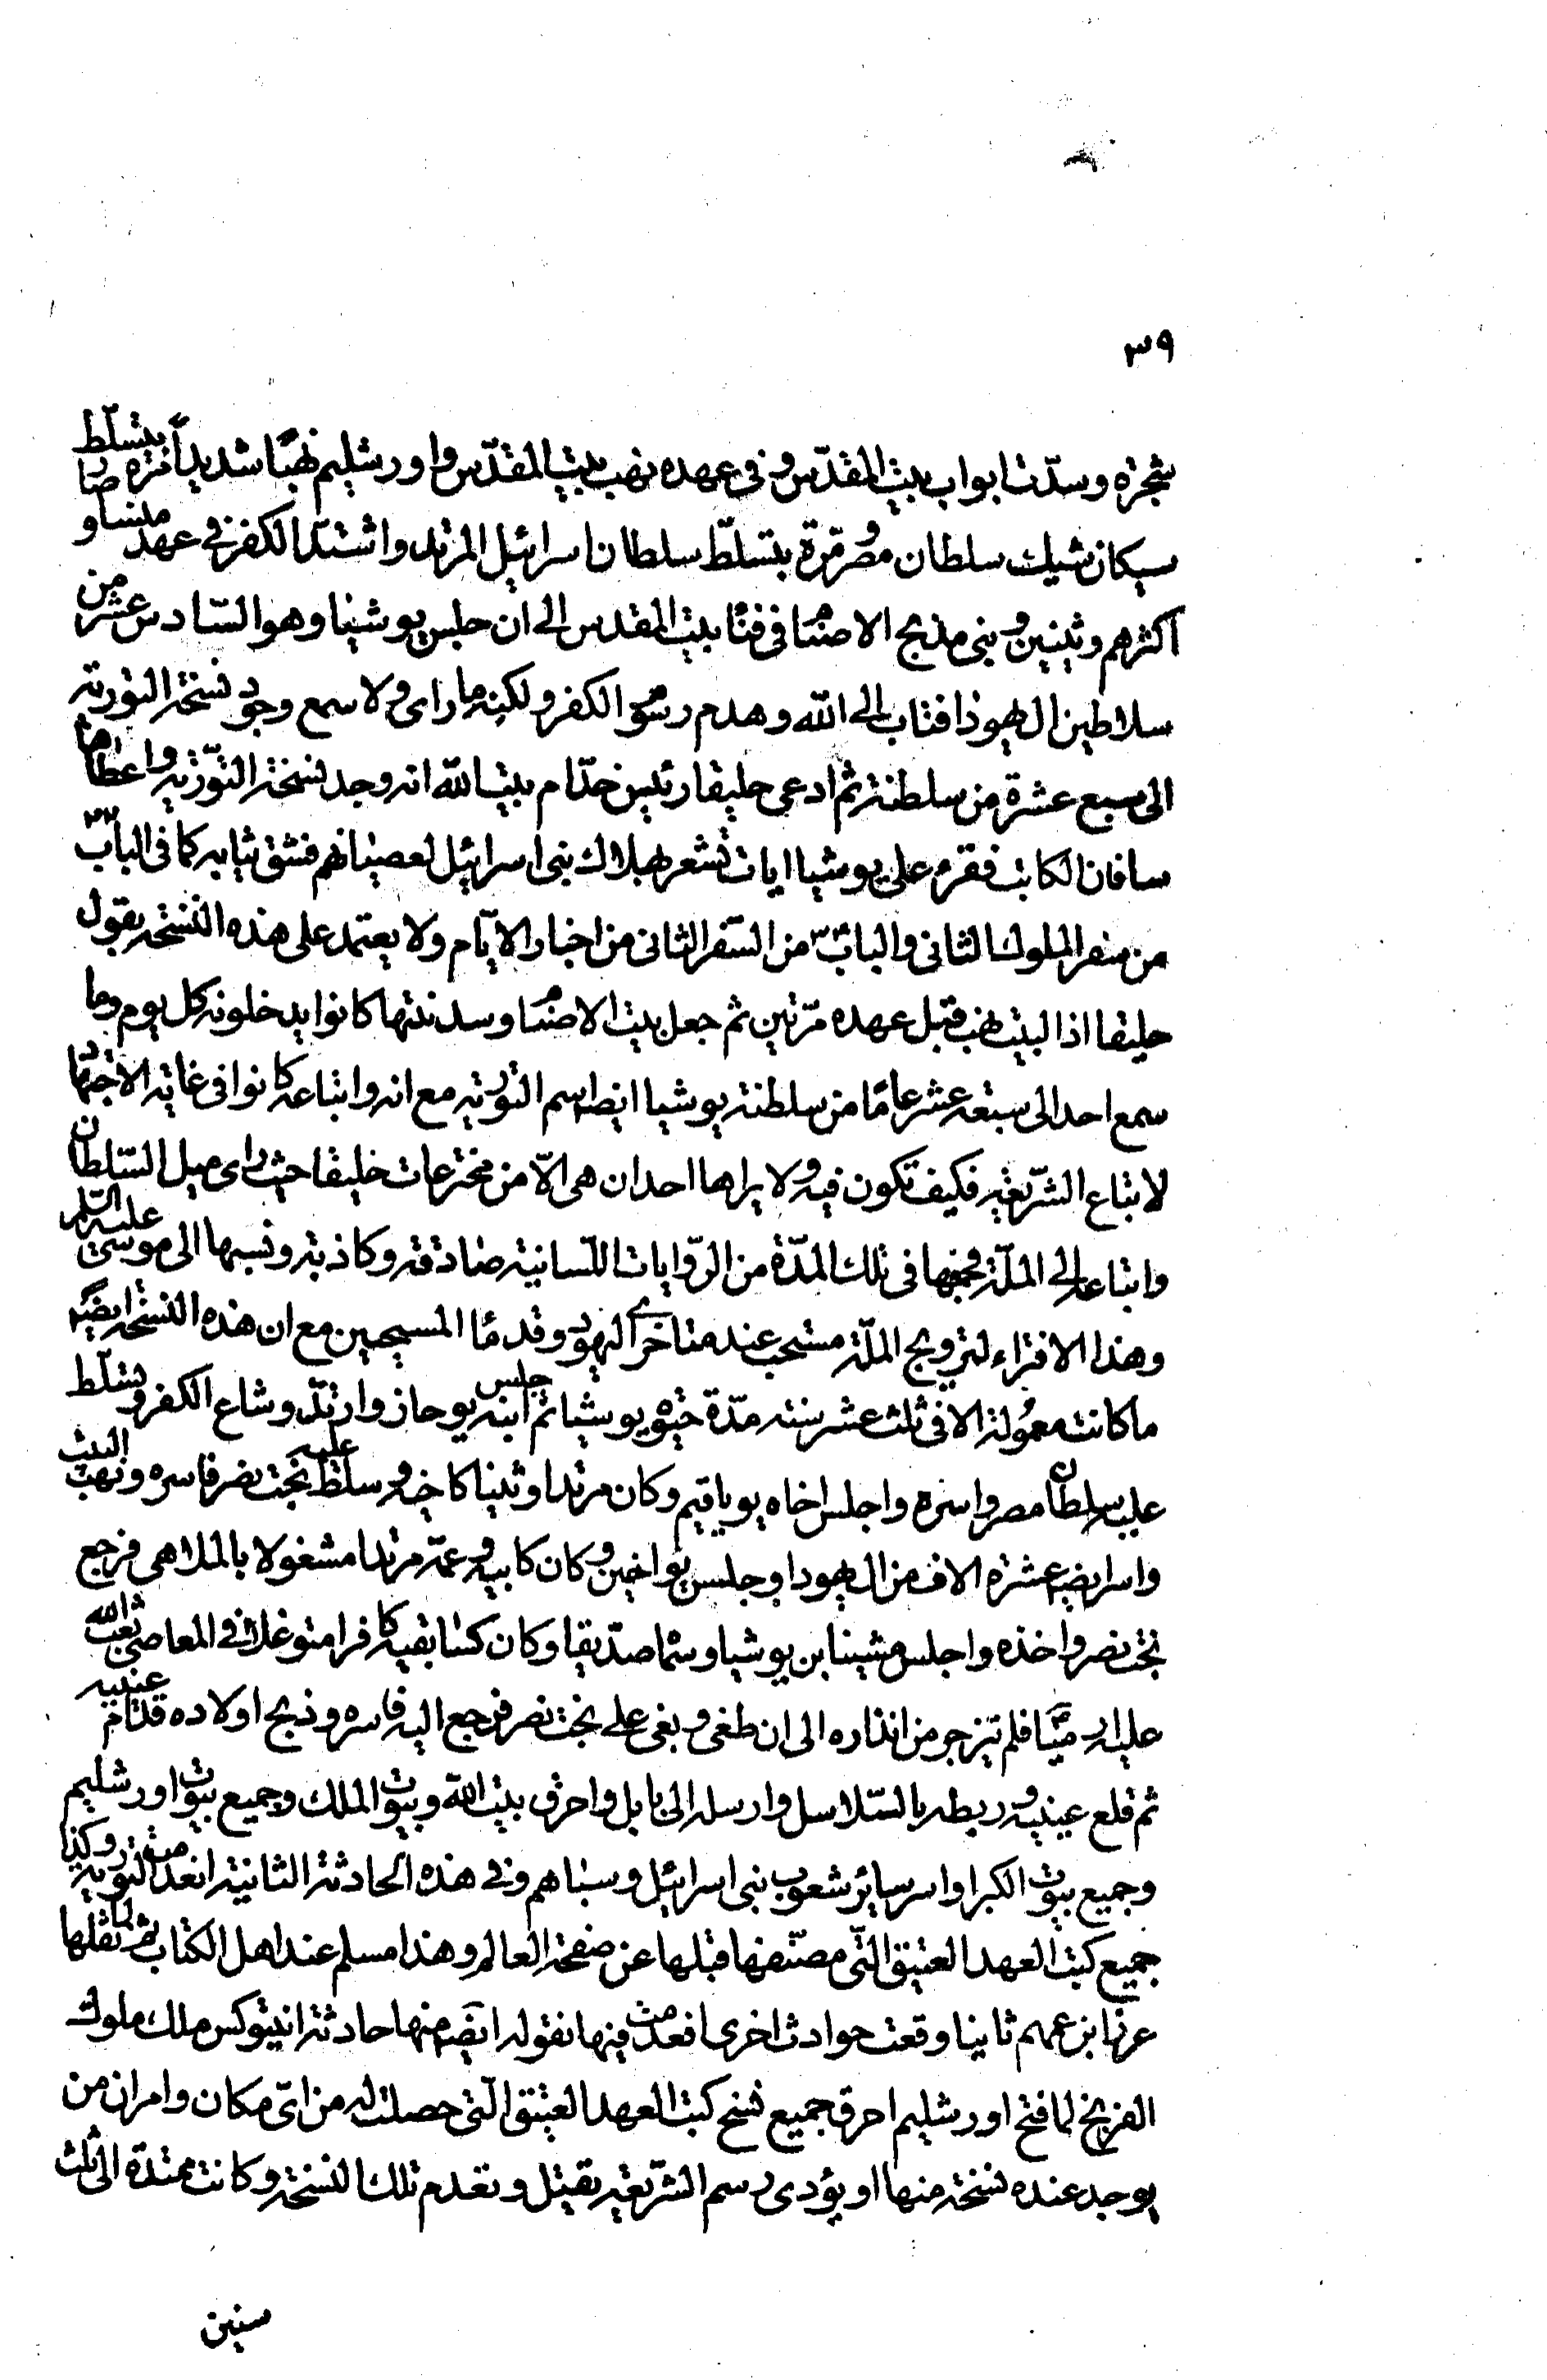 ٣٩
شجرة وسدّت ابواب بيت المقدّس وفى عهده نهب بيت المقدّس واورشليم نهبًا شديداً مرة بتسلّط
سلطان مصر ومرّة بتسلّط سلطان اسرائيل المرتد واشتد الكفر فى عهد منسا و
اكثرهم وثنيين وبنى مذبح الاصنام فى فناء بيت المقدس الى ان جلس يوشيا وهو السادس عشر من
سلاطين ال يهوذا فتاب الى الله وهدم رسوم الكفر ولكنه ما راى ولا سمع وجود نسخة التورية
الى سبع عشرة من سلطنته ثم ادعى حليقا رئيس خدّام بيت الله انه وجد نسخة التورية واعطاها
سافان الكاتب فقرء على يوشيا ايات تشعر بهلاك بنى اسرائيل لعصيانهم فشق ثيابه كما فى الباب ٢٢
من سفر الملوك الثانى والباب ٣٤ من السّفر الثانى من اخبار الايّام ولا يعتمد على هذه النسخة بقول
حليقا اذ البيت نهب قبل عهده مرّتين ثم جعل بيت الاصنام وسدنتها كانوا يدخلونه كل يوم وما
سمع احد الى سبعة عشر عامًا من سلطنة يوشيا ايضا اسم التورية مع انه واتباعه كانوا فى غاية الاجتهاد
لاتباع الشّريعة فكيف تكون فيه ولا يراها احد ان هى الّا من مخترعات حليقا حيث راى ميل السّلطان
واتباعه الى الملّة فجمعها فى تلك المدّة من الرّوايات اللّسانية صادقة وكاذبة ونسبها الى موسى عليه السّلم
وهذا الافتراء لترويج الملّة مستحب عند متاخرى اليهود وقدماء المسيحيين مع ان هذه النسخة ايضًا
ما كانت معمولة الا فى ثلث عشر سنة مدّة حيوة يوشيا ثم جلس ابنه يوحاز وارتدّ وشاع الكفر وتسلّط
عليه سلطان مصر واسره واجلس اخاه يوياقيم وكان مرتدا وثنيا كاخيه وسلط عليه بخت نصر فاسره ونهب البيث
واسر ايضا عشرة الاف من ال يهودا وجلس يواخين وكان كابيه وعمّه مرتدا مشغولا بالملاهى فرجع
بخت نصر واخذه واجلس مشينا بن يوشيا وسمّاه صدّيقا وكان كسابقيه كافرا متوغلا فى المعاصى بعث الله
عليه ارميّا فلم يتزجر من انذاره الى ان طغى وبغى على بخت نصر فرجع اليه فاسره وذبح اولاده قدام عينيه
ثم قلع عينيه وربطه بالسّلاسل وارسله الى بابل واحرق بيت الله وبيوت الملك وجميع بيوت اورشليم
وجميع بيوت الكبرا واسر سائر شعوب بنى اسرائيل وسباهم وفى هذه الحادثة الثانية انعدمت التورية وكذا
جميع كتب العهد العتيق التّى مصنّفها قبلها عن صفحة العالم وهذا مسلم عند اهل الكتاب ثم لما نقلها
عزرا بزعمهم ثانيا وقعت حوادث اخرى انعدمت فيها نقوله ايضًا منها حادثة انيتوكس ملك ملوك
الفرنج لما فتح اورشليم احرق جميع نسخ كتب العهد العتيق الّتى حصلت له من اىّ مكان وامر ان من
يوجد عنده نسخة منها او يؤدى رسم الشّريعة يقتل وتعدم تلك النسخة وكانت ممتدة الى ثلث
سنين